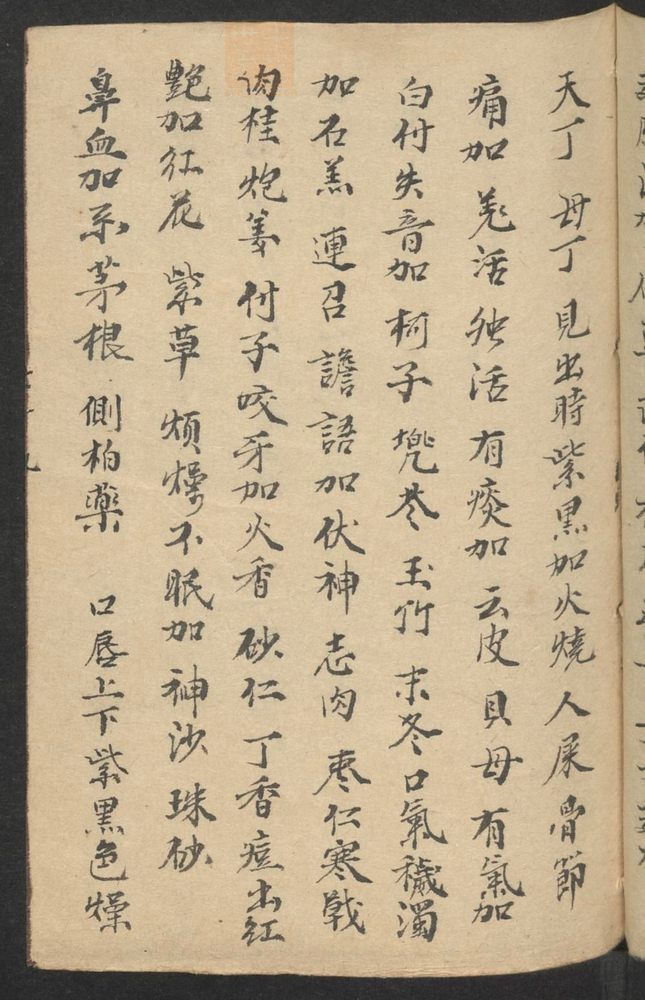 天丁 母丁 見出時紫黑加火燒人屎骨節
痛加 羌活 独活 有痰加 云皮 貝母 有氣加
白付失音加 柯子 兜苓 玉竹 末冬口氣穢濁
加石羔 連召 譫語加伏神 志肉 枣仁寒戰
肉桂 炮姜 付子咬牙加火香 砂仁 丁香痘出紅
艷加红花 紫草 煩燥不眠加 神沙 珠砂
鼻血加 茅根 側柏藥 口唇上下紫黑色燥